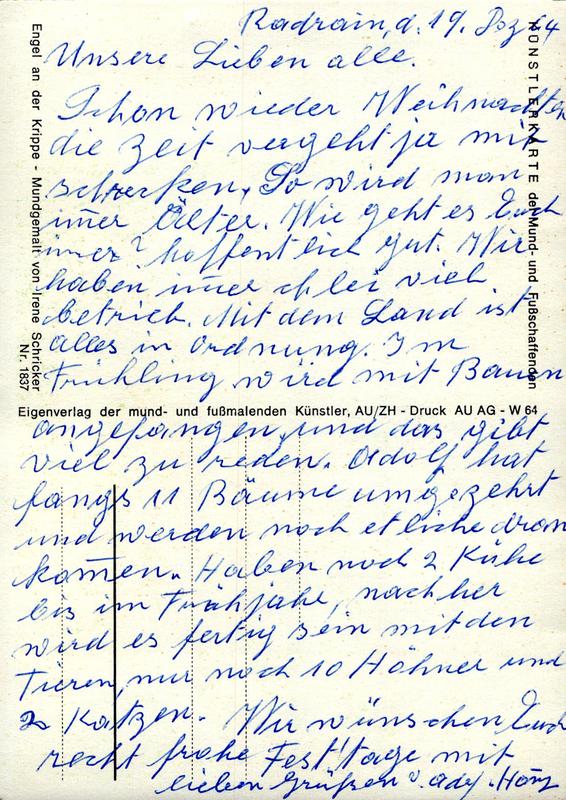 Radrain, d. 19. Dez 64
Unsere Lieben alle.
Schon wieder Weihnachten
die Zeit vergeht ja mit
schrecken. So wird man
im̄er Älter. Wie geht es Euch
im̄er? hoffentlich gut. Wir
haben im̄er viel
betrieb. Mit dem Land ist
alles in Ordnung. Im
Frühling wird mit Bauen
angefangen, und das gibt
viel zu reden. Adolf hat
fangs 11 Bäume umgezehrt
und werden noch etliche dran
kom̄en. Haben noch 2 Kühe
bis im Frühjahr, nachher
wird es fertig sein mit den
Tieren, nur noch 10 Höhner und
2 Katzen. Wir wünschen Euch
recht frohe Festtage mit
lieben Grüßen
Engel an der Krippe - Mundgemalt von Irene Schricker
Nr. 1837
KÜNSTLERKARTE der Mund- und Fußschaffenden
Eigenverlag der mund- und fußmalenden Künstler, AU/ZH - Druck AU AG - W 64